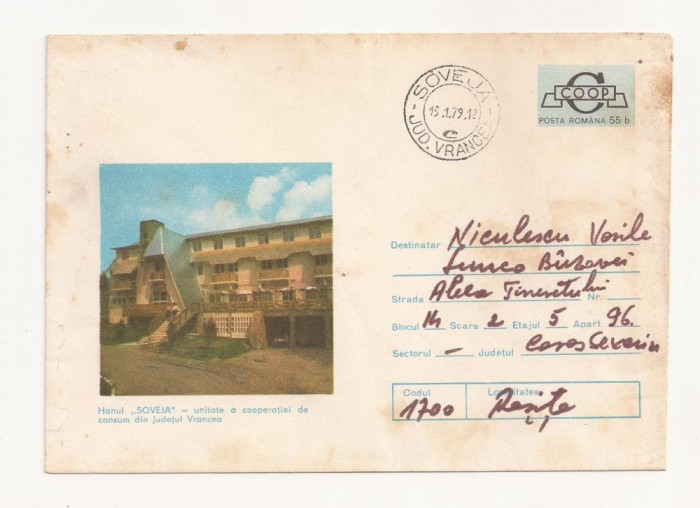 SOVEJA
13.1.79.12
C
JUD. VRANCEA
COOP
POSTA ROMÂNA 55 b
Destinatar Niculescu Vasile
Lunca Bîrzavei
Strada Aleea Tineretului Nr.
Blocul Scara 2 Etajul 5 Apart. 96.
Sectorul – Județul Caras Severin
Codul Localitatea
1700 Reșița
Hanul „SOVEJA" – unitate a cooperației de
consum din județul Vrancea